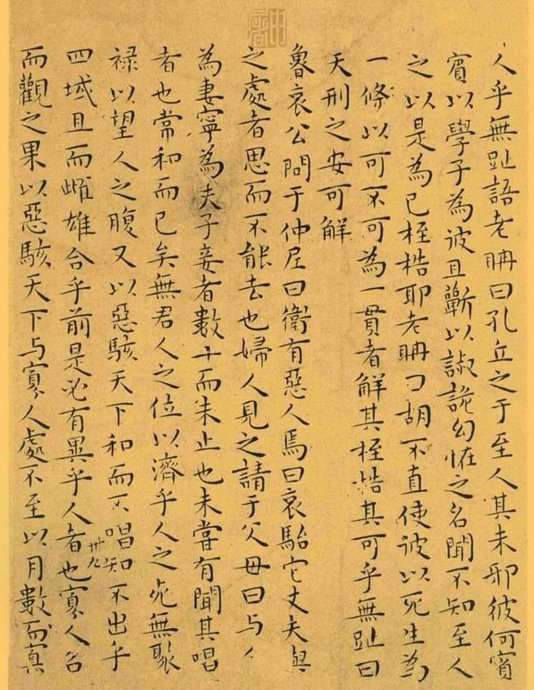 人乎無趾語老聃曰孔丘之于至人其未邪彼何賓
賓以學子為彼且蘄以諔詭幻恠之名聞不知至人
之以是為己桎梏耶老聃曰胡不直使彼以死生為
一條以可不可為一貫者解其桎梏其可乎無趾曰
天刑之安可解
魯哀公問于仲尼曰衛有惡人焉曰哀駘它丈夫與
之處者思而不能去也婦人見之請于父母曰与人
為妻寧為夫子妾者數十而未止也未嘗有聞其唱
者也常和而已矣無君人之位以濟乎人之死無聚
禄以望人之腹又以惡駭天下和而不唱知不出乎
四域且而雌雄合乎前是必有異乎人者也寡人召
卅九
而觀之果以惡駭天下与寡人處不至以月數而寡